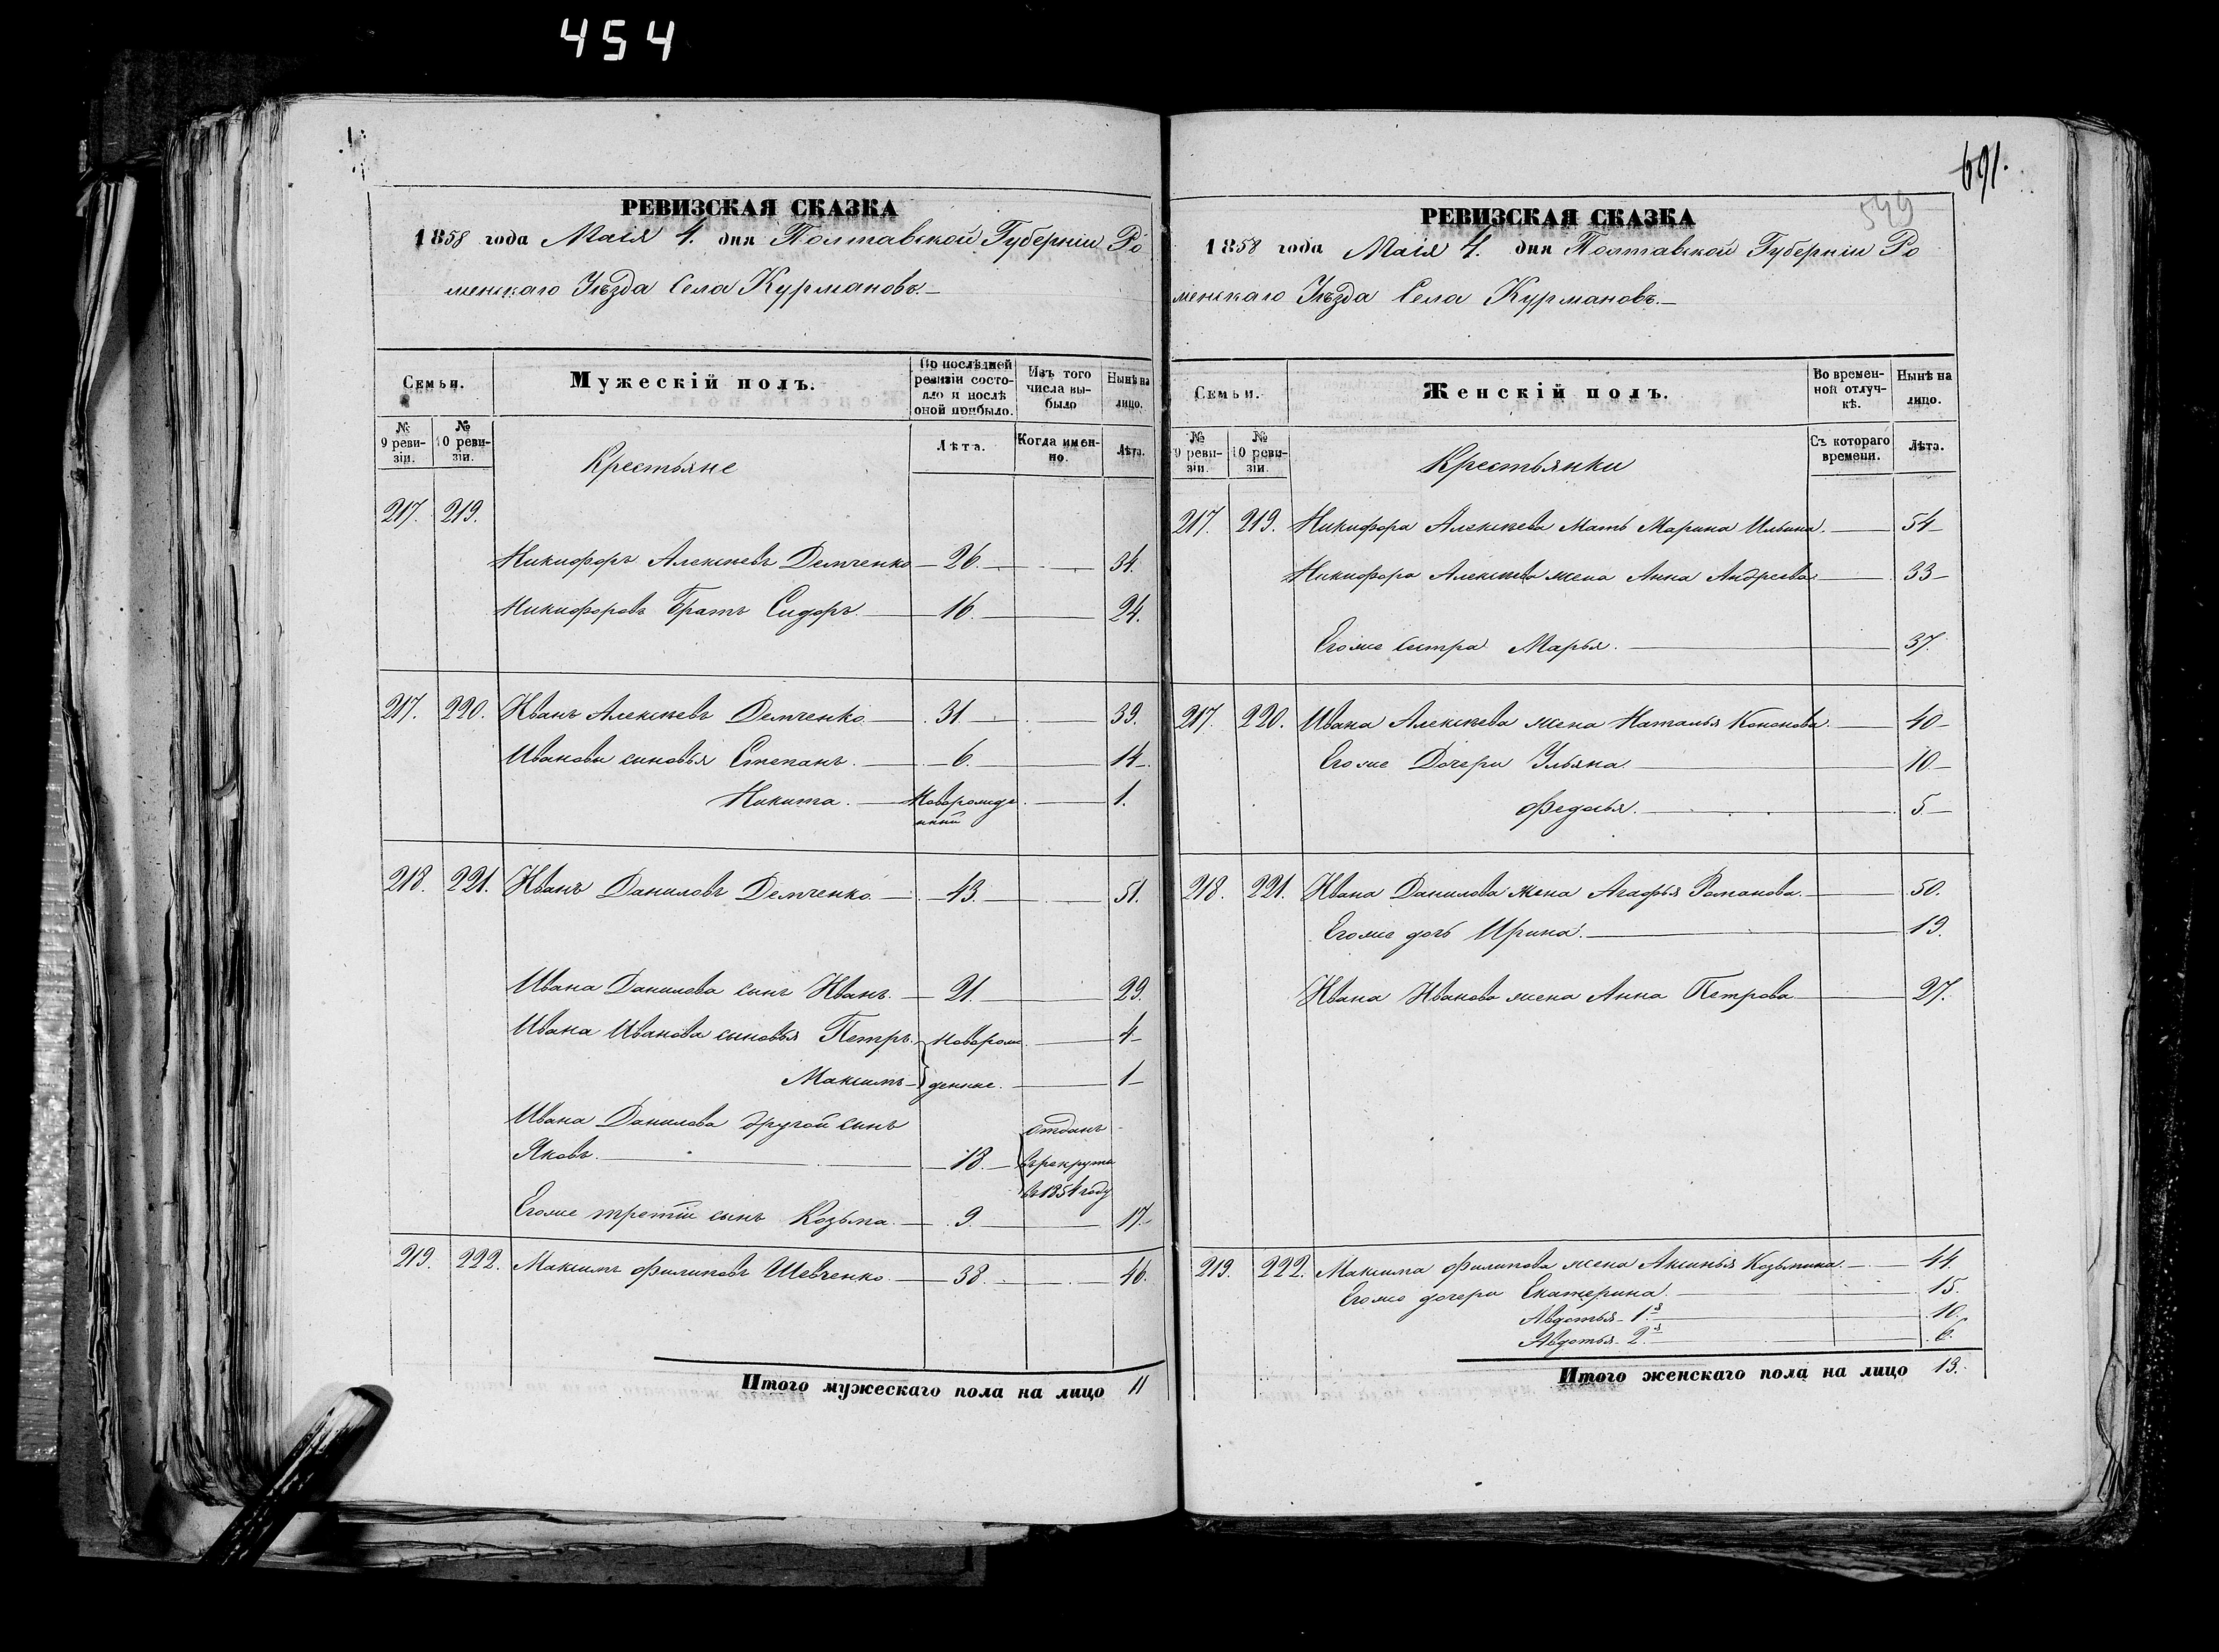 454
РЕВИЗСКАЯ СКАЗКА
1858 года Маія 4. дня Полтавской Губерніи Ро
менскаго Уѣзда Села Курмановъ.
Семьи.
Мужескій полъ.
По послѣдней ревизіи состояло и послѣ оной прибыло.
Изъ того числа выбыло
Нынѣ на лицо.
№ 9 ревизіи.
№ 10 ревизіи.
Крестьяне
Лѣта.
Когда именно.
Лѣта.
217. 219.
Никифоръ Алексѣевъ Демченко 26. 34.
Никифоровъ Братъ Сидоръ. 16. 24.
217. 220. Иванъ Алексѣевъ Демченко 31. 39.
Ивановы сыновья Степанъ. 6. 14.
Никита. Новорожде 1.
нный
218. 221. Иванъ Даниловъ Демченко 43. 51.
Ивана Данилова сынъ Иванъ. 21. 29.
Ивана Иванова сыновья Петръ. Новорож 4
Максимъ денные. 1
Ивана Данилова другой сынъ отданъ
Яковъ. 18. въ рекруты
въ 1854 году
Егоже третій сынъ Козьма. 9. 17.
219. 222. Максимъ Филиповъ Шевченко. 38. 46.
Итого мужескаго пола на лицо 11
691.
549
РЕВИЗСКАЯ СКАЗКА
1858 года Маія 4. дня Полтавской Губерніи Ро
менскаго Уѣзда Села Курмановъ.
Семьи.
Женскій полъ.
Во временной отлучкѣ.
Нынѣ на лицо.
№ 9 ревизіи.
№ 10 ревизіи.
Крестьянки
Съ котораго времени.
Лѣта.
217. 219. Никифора Алексѣева Мать Марина Ильина. 54
Никифора Алексѣева жена Анна Андреева 33
Егоже сестра Марья. 37.
217. 220. Ивана Алексѣева жена Наталья Кононова. 40
Егоже Дочери Ульяна. 10
Федосья. 5
218. 221. Ивана Данилова жена Агафья Романова. 50.
Егоже дочь Ирина. 19.
Ивана Иванова жена Анна Петрова 27.
219. 222. Максима Филипова жена Аксинья Козьмина. 44.
Егоже дочери Екатерина. 15.
Авдотья 1я 10.
Авдотья 2я 6.
Итого женскаго пола на лицо 13.